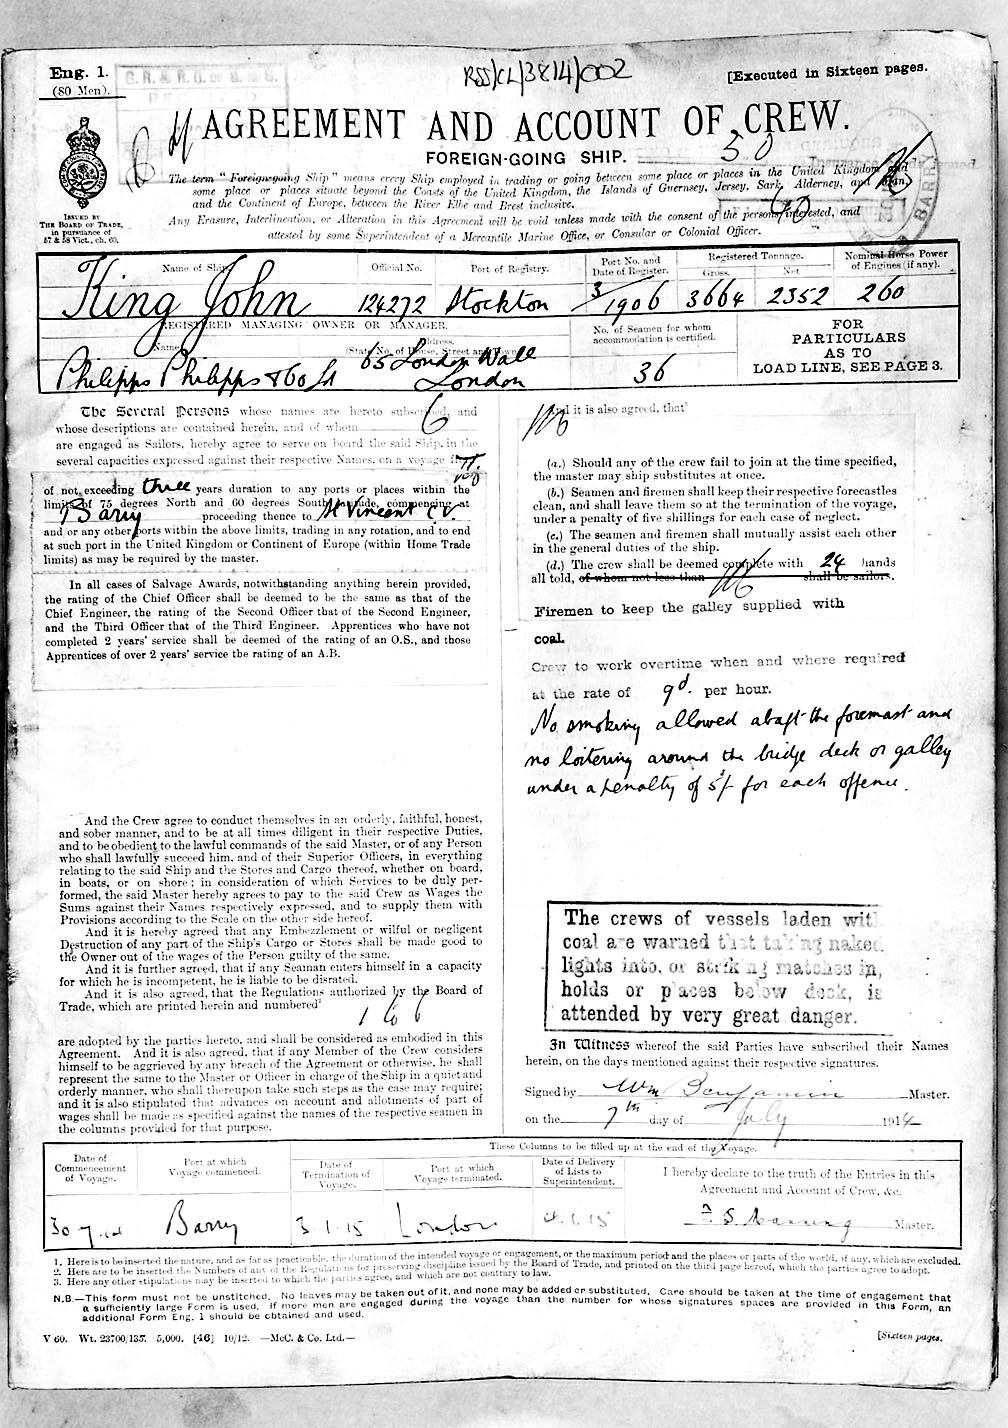 Eng. 1.
(80 Men).
RSS/CL/3814/002
[Executed in Sixteen pages.
AGREEMENT AND ACCOUNT OF CREW.
FOREIGN-GOING SHIP.
50
The term "Foreign-going Ship" means every Ship employed in trading or going between some place or places in the United Kingdom and
some place or places situate beyond the Coasts of the United Kingdom, the Islands of Guernsey, Jersey, Sark, Alderney, and Man,
and the Continent of Europe, between the River Elbe and Brest inclusive.
Any Erasure, Interlineation, or Alteration in this Agreement will be void unless made with the consent of the persons interested, and
attested by some Superintendent of a Mercantile Marine Office, or Consular or Colonial Officer.
ISSUED BY
THE BOARD OF TRADE,
in pursuance of
57 & 58 Vict., ch. 60.
BARRY
Name of Ship. Official No. Port of Registry. Port No. and Date of Register. Registered Tonnage. Gross. Net. Nominal Horse Power of Engines (if any).
King John 124272 Stockton 3/1906 3664 2352 260
REGISTERED MANAGING OWNER OR MANAGER.
Name. Address. (State No. of House, Street and Town)
No. of Seamen for whom accommodation is certified.
Philipps Philipps & Co Ld 65 London Wall London 36
FOR
PARTICULARS
AS TO
LOAD LINE, SEE PAGE 3.
The Several Persons whose names are hereto subscribed, and
whose descriptions are contained herein, and of whom 6
are engaged as Sailors, hereby agree to serve on board the said Ship, in the
several capacities expressed against their respective Names, on a voyage
of not exceeding three years duration to any ports or places within the
limits of 75 degrees North and 60 degrees South latitude, commencing at
Barry proceeding thence to St Vincent C.V.
and or any other ports within the above limits, trading in any rotation, and to end
at such port in the United Kingdom or Continent of Europe (within Home Trade
limits) as may be required by the master.
In all cases of Salvage Awards, notwithstanding anything herein provided,
the rating of the Chief Officer shall be deemed to be the same as that of the
Chief Engineer, the rating of the Second Officer that of the Second Engineer,
and the Third Officer that of the Third Engineer. Apprentices who have not
completed 2 years' service shall be deemed of the rating of an O.S., and those
Apprentices of over 2 years' service the rating of an A.B.
And the Crew agree to conduct themselves in an orderly, faithful, honest,
and sober manner, and to be at all times diligent in their respective Duties,
and to be obedient to the lawful commands of the said Master, or of any Person
who shall lawfully succeed him, and of their Superior Officers, in everything
relating to the said Ship and the Stores and Cargo thereof, whether on board,
in boats, or on shore; in consideration of which Services to be duly per-
formed, the said Master hereby agrees to pay to the said Crew as Wages the
Sums against their Names respectively expressed, and to supply them with
Provisions according to the Scale on the other side hereof.
And it is hereby agreed that any Embezzlement or wilful or negligent
Destruction of any part of the Ship's Cargo or Stores shall be made good to
the Owner out of the wages of the Person guilty of the same.
And it is further agreed, that if any Seaman enters himself in a capacity
for which he is incompetent, he is liable to be disrated.
And it is also agreed, that the Regulations authorized by the Board of
Trade, which are printed herein and numbered²
1 to 6
are adopted by the parties hereto, and shall be considered as embodied in this
Agreement. And it is also agreed, that if any Member of the Crew considers
himself to be aggrieved by any breach of the Agreement or otherwise, he shall
represent the same to the Master or Officer in charge of the Ship in a quiet and
orderly manner, who shall thereupon take such steps as the case may require;
and it is also stipulated that advances on account and allotments of part of
wages shall be made as specified against the names of the respective seamen in
the columns provided for that purpose.
And it is also agreed, that³
(a.) Should any of the crew fail to join at the time specified,
the master may ship substitutes at once.
(b.) Seamen and firemen shall keep their respective forecastles
clean, and shall leave them so at the termination of the voyage,
under a penalty of five shillings for each case of neglect.
(c.) The seamen and firemen shall mutually assist each other
in the general duties of the ship.
(d.) The crew shall be deemed complete with 24 hands
all told, of whom not less than shall be sailors.
Firemen to keep the galley supplied with
coal.
Crew to work overtime when and where required
at the rate of 9d. per hour.
No smoking allowed abaft the foremast and
no loitering around the bridge deck or galley
under a penalty of 5/- for each offence.
The crews of vessels laden with
coal are warned that taking naked
lights into, or striking matches in,
holds or places below deck, is
attended by very great danger.
In Witness whereof the said Parties have subscribed their Names
herein, on the days mentioned against their respective signatures.
Signed by Wm Benjamin Master.
on the 7th day of July 1914
These Columns to be filled up at the end of the Voyage.
Date of Commencement of Voyage. Port at which Voyage commenced. Date of Termination of Voyage. Port at which Voyage terminated. Date of Delivery of Lists to Superintendent.
I hereby declare to the truth of the Entries in this
Agreement and Account of Crew, &c.
30.7.14 Barry 3.1.15 London 4.1.15 Master.
1. Here is to be inserted the nature, and as far as practicable, the duration of the intended voyage or engagement, or the maximum period and the places or parts of the world, if any, which are excluded.
2. Here are to be inserted the Numbers of any of the Regulations for preserving discipline issued by the Board of Trade, and printed on the third page hereof, which the parties agree to adopt.
3. Here any other stipulations may be inserted to which the parties agree, and which are not contrary to law.
N.B.—This form must not be unstitched. No leaves may be taken out of it, and none may be added or substituted. Care should be taken at the time of engagement that
a sufficiently large Form is used. If more men are engaged during the voyage than the number for whose signatures spaces are provided in this Form, an
additional Form Eng. 1 should be obtained and used.
V 60. Wt. 23700/135. 5,000. [46] 10/12. —McC. & Co. Ltd.—
[Sixteen pages.